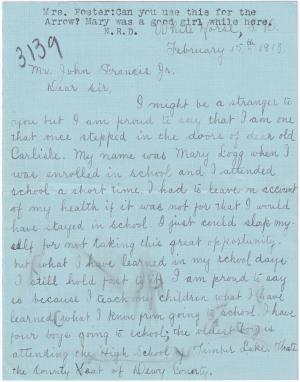 Mrs. Foster:Can you use this for the
Arrow? Mary was a good girl while here.
N.R.D.
3139
White Horse, S. D.
February 15th 1913.
Mr. John Francis Jr.
Dear Sir,
I might be a stranger to
you but I am proud to say that I am one
that once stepped in the doors of dear old
Carlisle. My name was Mary Logg when I
was enrolled in school and I attended
school a short time. I had to leave on account
of my health if it was not for that I would
have stayed in school. I just could slap my-
self for not taking this great opportunity.
but what I have learned in my school days
I still hold fast to it. I am proud to say
so because I teach my children what I have
learned (what I know from going to school. I have
four boys going to school; the oldest boy is
attending the High School Timber Lake,
the County Seat of Dewy County.